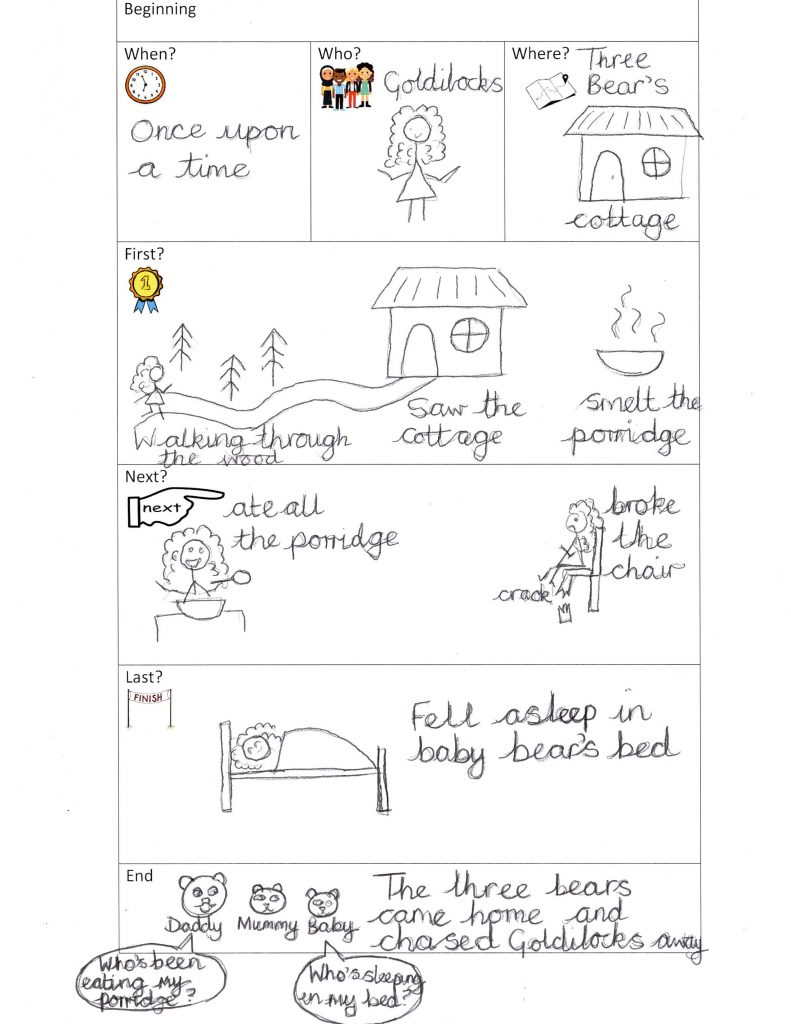 Beginning
When?
Once upon
a time
Who?
Goldilocks
Where?
Three
Bear's
cottage
First?
1
Walking through
the wood
Saw the
cottage
smelt the
porridge
Next?
next
ate all
the porridge
broke
the
chair
crack
Last?
FINISH
Fell asleep in
baby bear's bed
End
Daddy
Mummy
Baby
The three bears
came home and
chased Goldilocks away
Who's been
eating my
porridge?
Who's sleeping
in my bed?